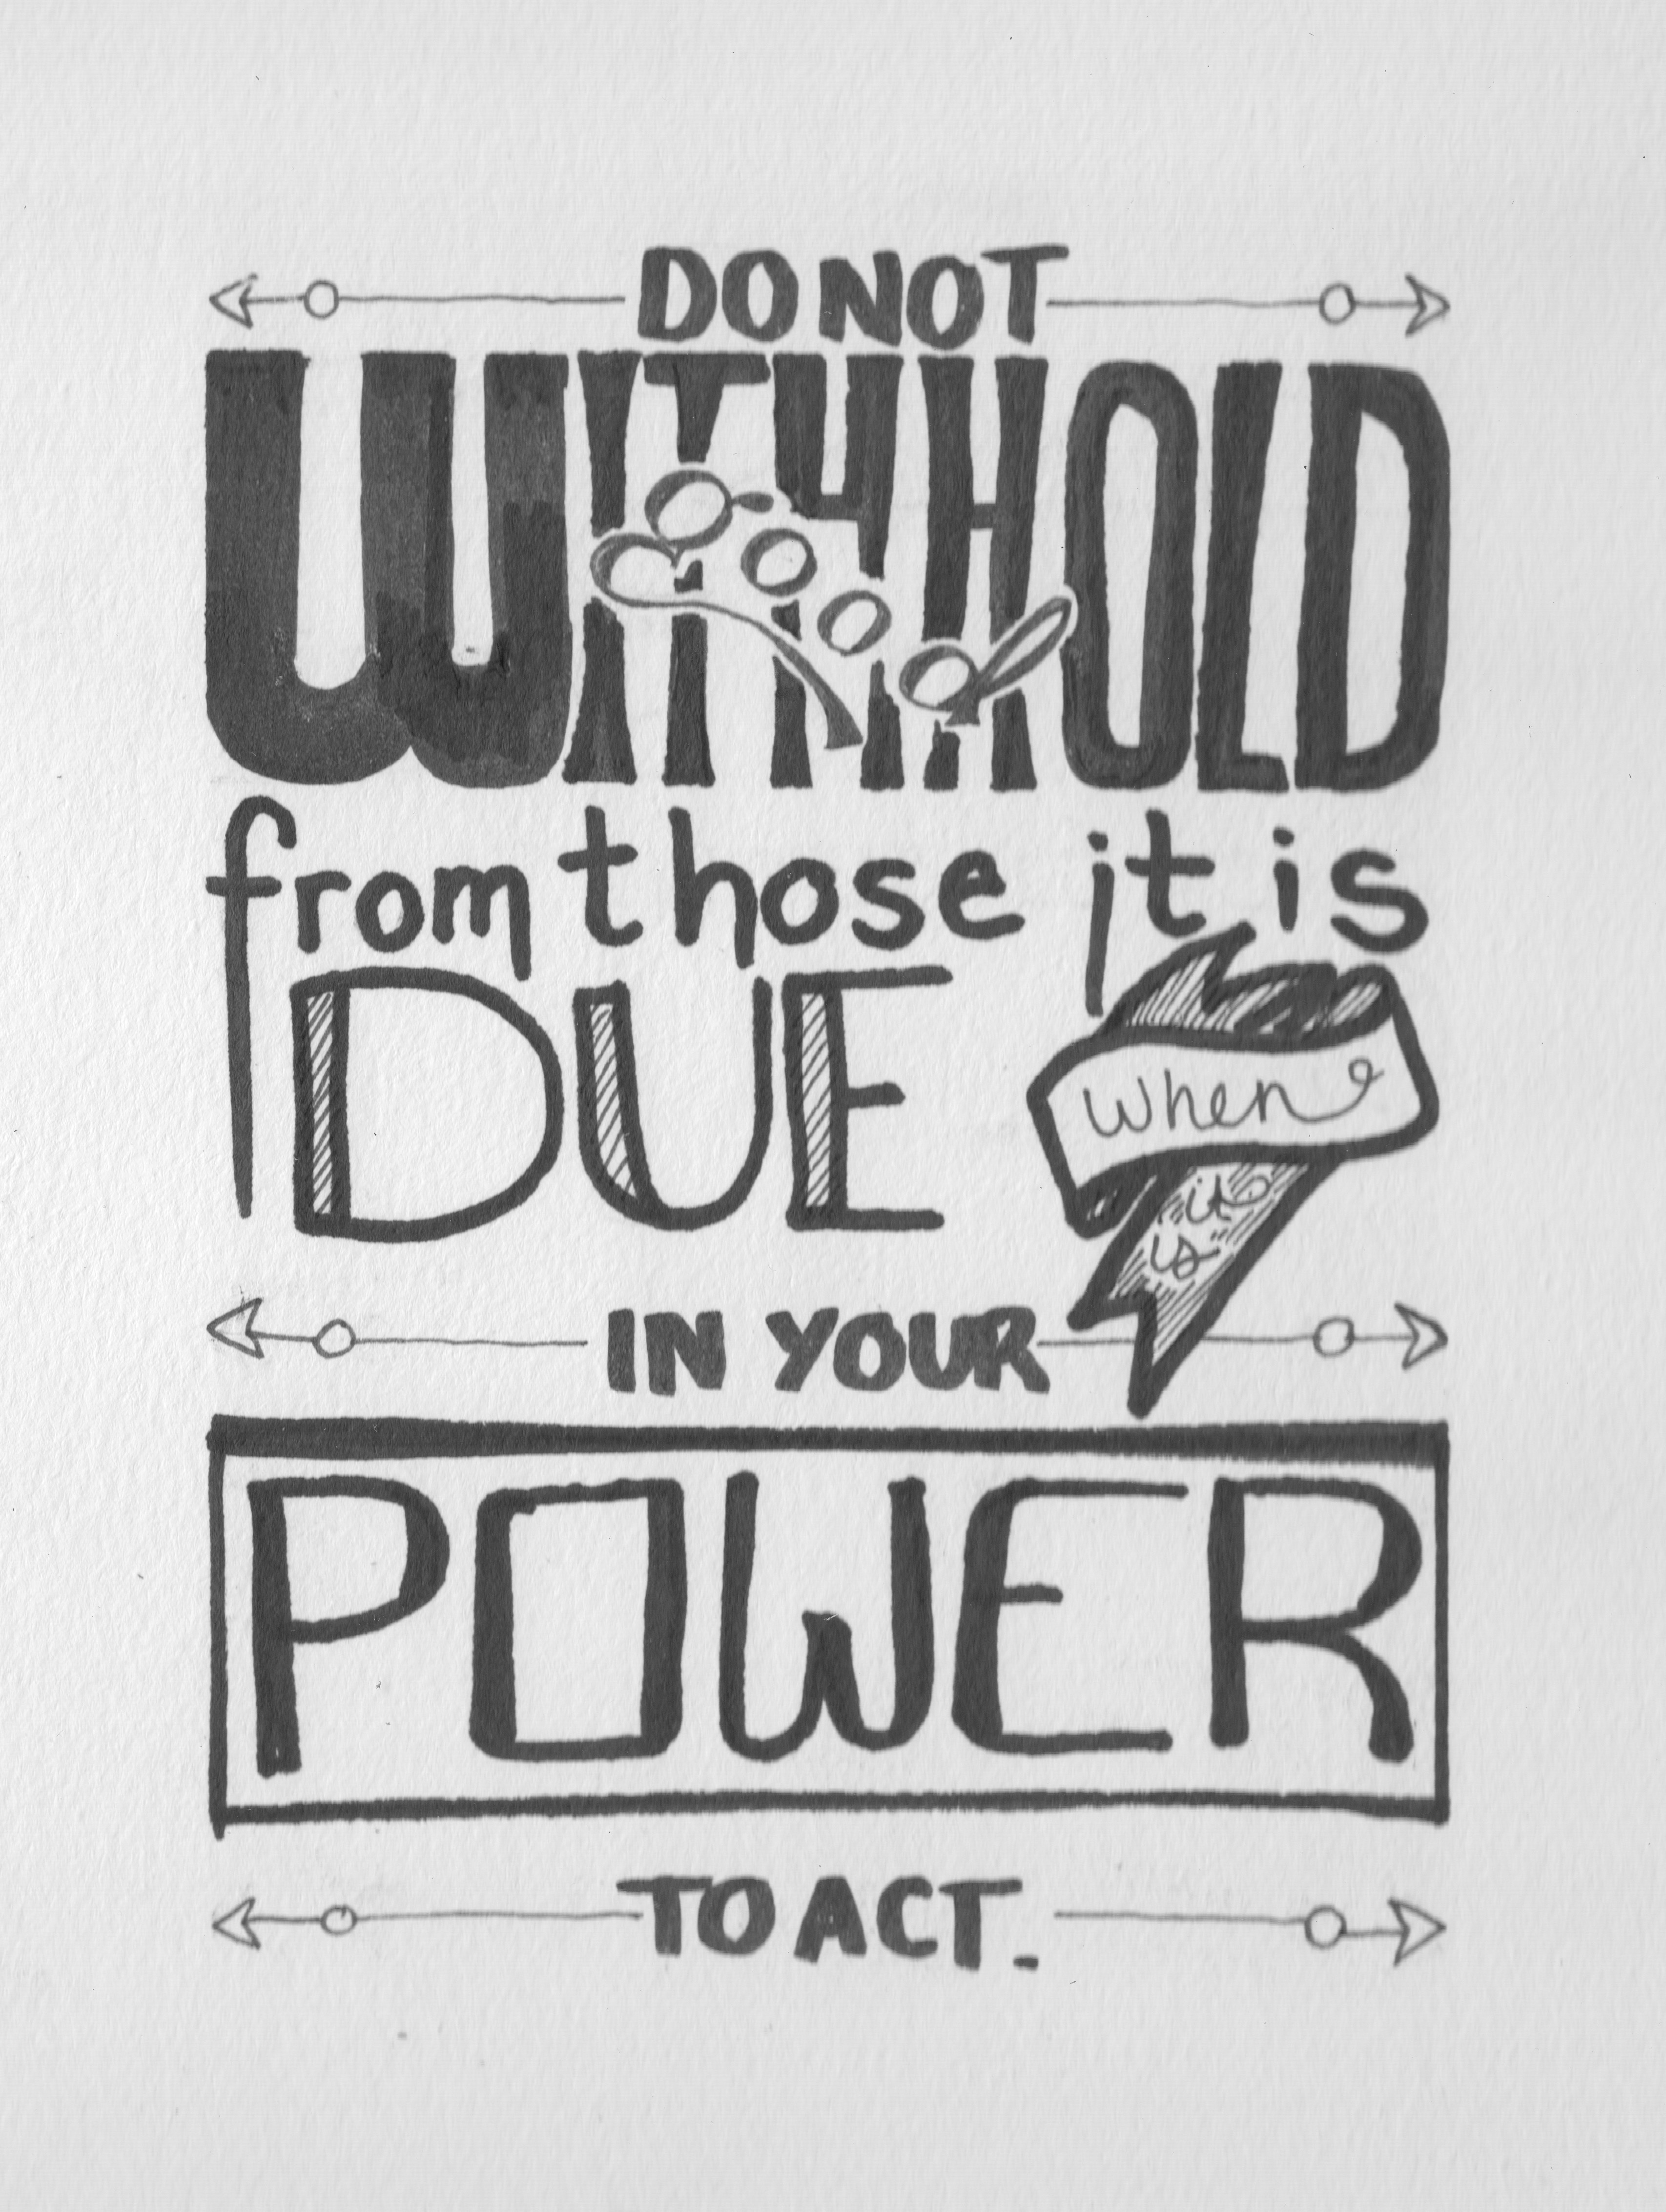 DO NOT
WITHHOLD
good
from those it is
DUE
when
it
is
IN YOUR
POWER
TO ACT.